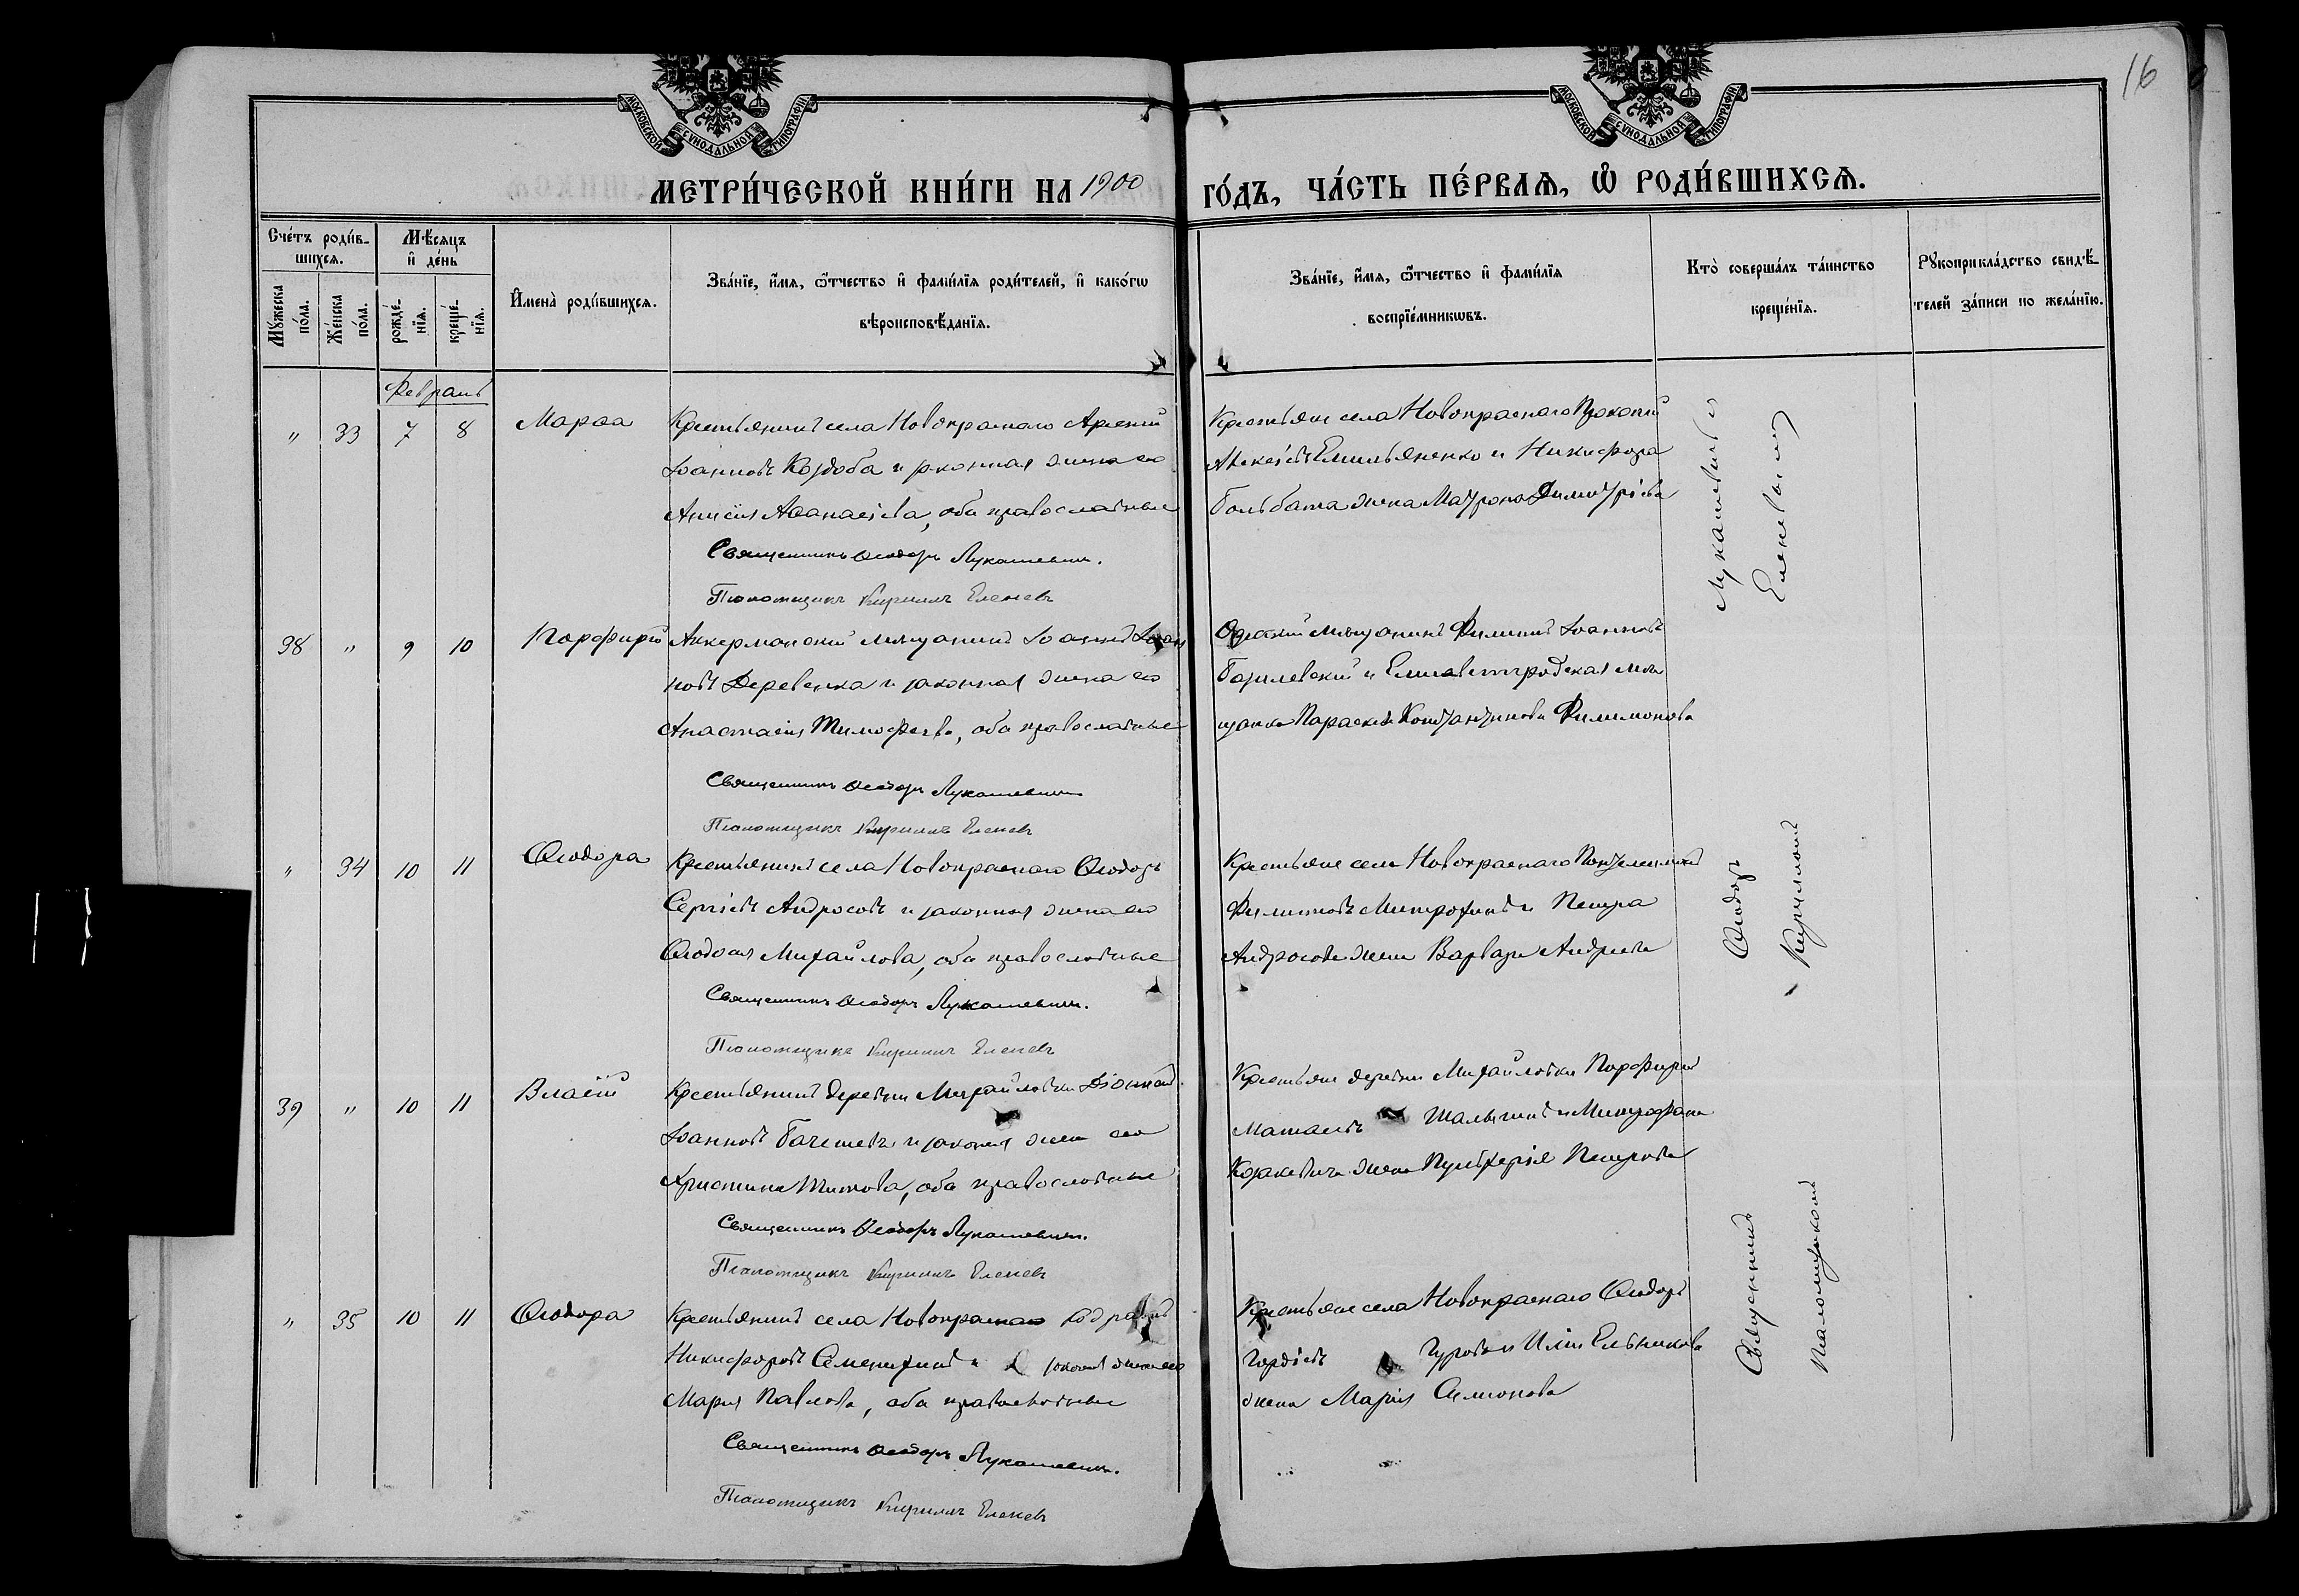 МОСКОВСКОЙ СУНОДАЛЬНОЙ ТИПОГРАФІИ
МОСКОВСКОЙ СУНОДАЛЬНОЙ ТИПОГРАФІИ
16
МЕТРИ́ЧЕСКОЙ КНИ́ГИ НА 1900
ГО́ДЪ, ЧА́СТЬ ПЕ́РВАѦ, Ѡ РОДИ́ВШИХСѦ.
Сче́тъ роди́в-
шихсѧ.
Мꙋ́жеска по́ла.
Же́нска по́ла.
Мѣ́сяцъ
и де́нь
рожде́-
нїѧ.
креще́-
нїѧ.
И҆мена̀ роди́вшихсѧ.
Зва́нїе, и҆́мѧ, ѻ҆́тчество и҆ фами́лїѧ роди́телей, и҆ како́гѡ
вѣроисповѣ́данїѧ.
Зва́нїе, и҆́мѧ, ѻ҆́тчество и҆ фами́лїѧ
воспрїе́мникѡвъ.
Кто̀ соверша́лъ та́инство
креще́нїѧ.
Рꙋкоприкла́дство свидѣ́-
телей за́писи по жела́нїю.
Февраль
" 33 7 8 Марѳа
Крестьянинъ села Новокраснаго Арсений
Іоанновъ Коздоба и законная жена его
Анисія Аѳанасіева, оба православные
Священникъ Ѳеодоръ Лукашевичъ.
Псаломщикъ Кириллъ Еленевъ
Крестьяне села Новокраснаго Прокопій
Алексіевъ Емельяненко и Никифора
жена Матрона Димитріева
38 " 9 10 Порфирій
Аккерманскій мещанинъ Іоаннъ Іоан
новъ Деревенка и законная жена его
Анастасія Тимофеева, оба православные
Священникъ Ѳеодоръ Лукашевичъ
Псаломщикъ Кириллъ Еленевъ
Одесскій мещанинъ Филиппъ Іоанновъ
Базилевскій и Елисаветградская мѣ
щанка Параскева Константинова Филимонова
" 34 10 11 Ѳеодора
Крестьянинъ села Новокраснаго Ѳеодоръ
Сергіевъ Андросовъ и законная жена его
Ѳеодосія Михайлова, оба православные
Священникъ Ѳеодоръ Лукашевичъ.
Псаломщикъ Кириллъ Еленевъ
Крестьяне села Новокраснаго Пантелеимонъ
Филипповъ Митрохинъ и Петра
Андросова жена Варвара Андреева
39 " 10 11 Власій
Крестьянинъ деревни Михайловки
Іоанновъ и законная жена его
Христина Титова, оба православные
Священникъ Ѳеодоръ Лукашевичъ.
Псаломщикъ Кириллъ Еленевъ
Крестьяне деревни Михайловки Порфирій
и Митрофана
жена Пульхерія Петрова
" 35 10 11 Ѳеодора
Крестьянинъ села Новокраснаго Кодратъ
Никифоровъ Семенихинъ и законная жена его
Марія Павлова, оба православные
Священникъ Ѳеодоръ Лукашевичъ.
Псаломщикъ Кириллъ Еленевъ
Крестьяне села Новокраснаго Ѳеодоръ
Гордіевъ Гуровъ и Иліи Ельникова
жена Марія Симонова
Священникъ Ѳеодоръ Лукашевичъ съ
Псаломщикомъ Кирилломъ Еленевымъ